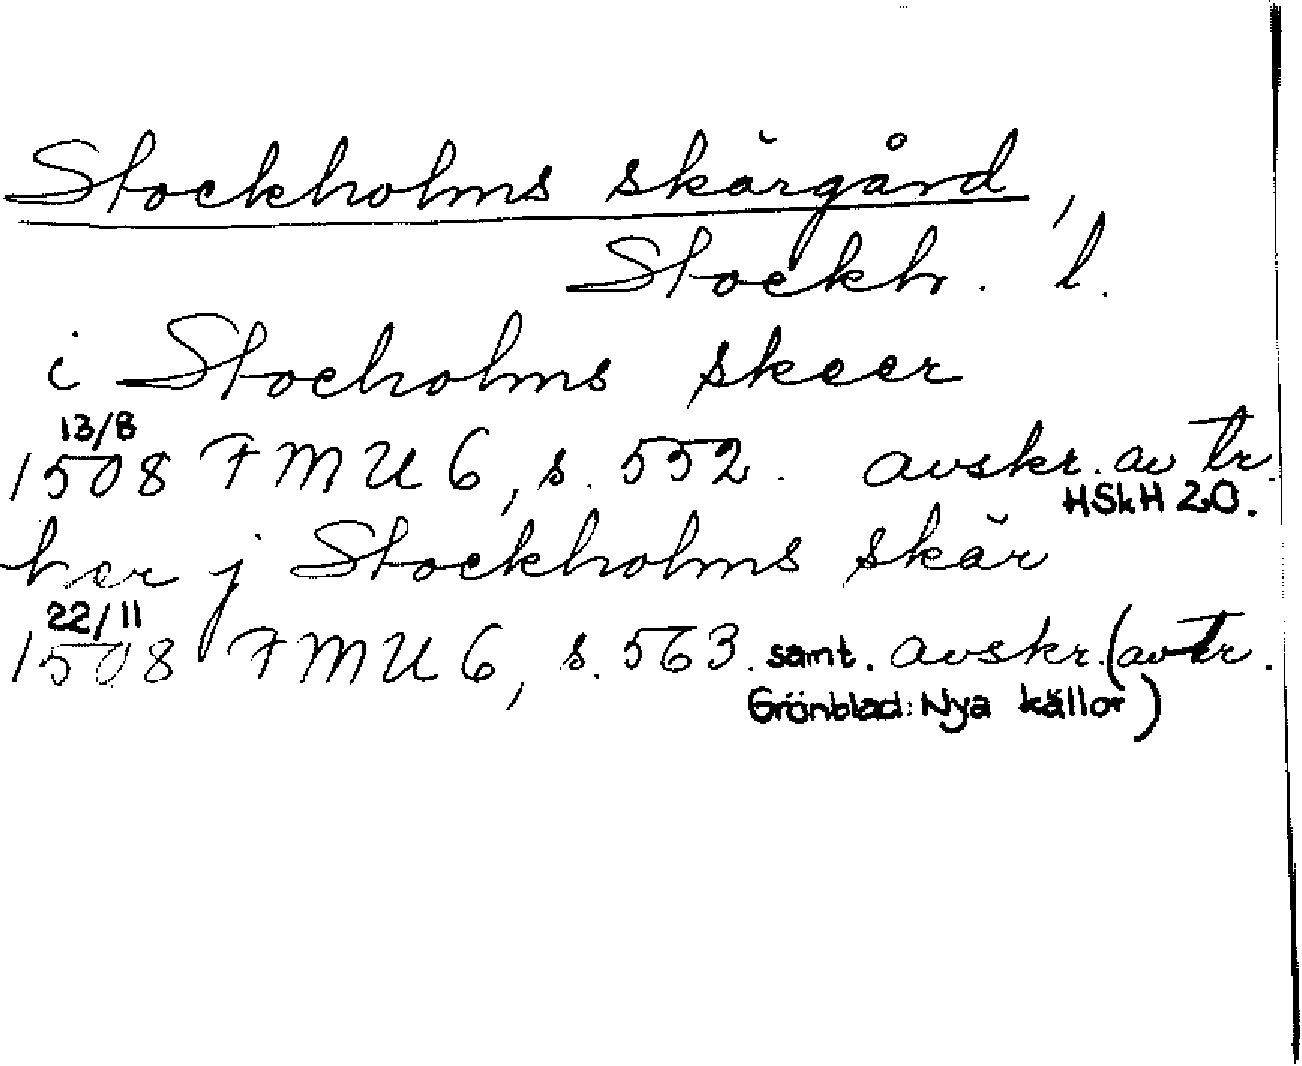 Stockholms skärgård,
Stockh. l.
i Stocholms skeer
13/8
1508 FMU 6, s. 552. avskr. av tr.
HSkH 20.
her j Stockholms skär
22/11
1508 FMU 6, s. 563. samt. avskr. (av tr.
Grönblad: Nya källor)